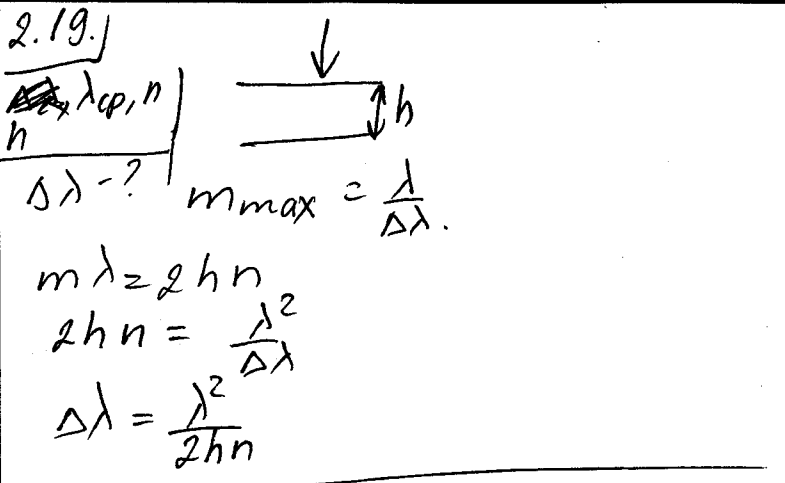 2.19.
λср, n
h
Δλ - ?
h
m max = λ/Δλ.
mλ = 2hn
2hn = λ²/Δλ
Δλ = λ²/2hn